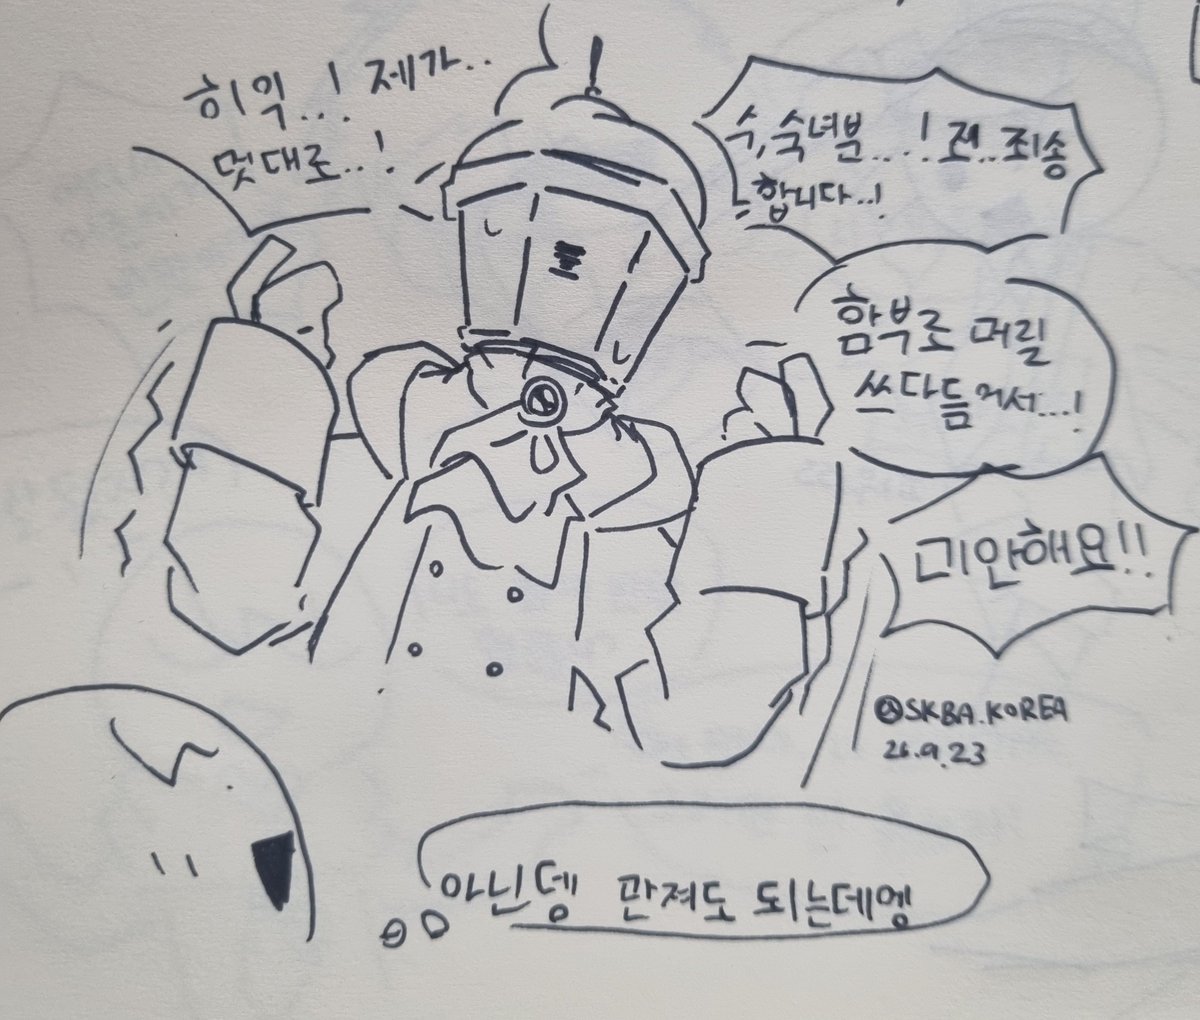 히익...! 제가..
멋대로...!
수,숙녀분...! 죄..죄송
합니다..!
함부로 머릴
쓰다듬어서...!
미안해요!!
@SKBA.KOREA
26.9.23
아닌뎅 만져도 되는데엥